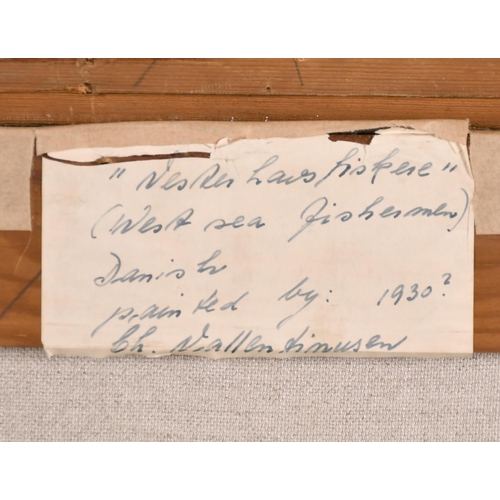 "Vesterhavsfiskere"
(West sea fishermen)
Danish
painted by: 1930?
Ch. Vallentinusen